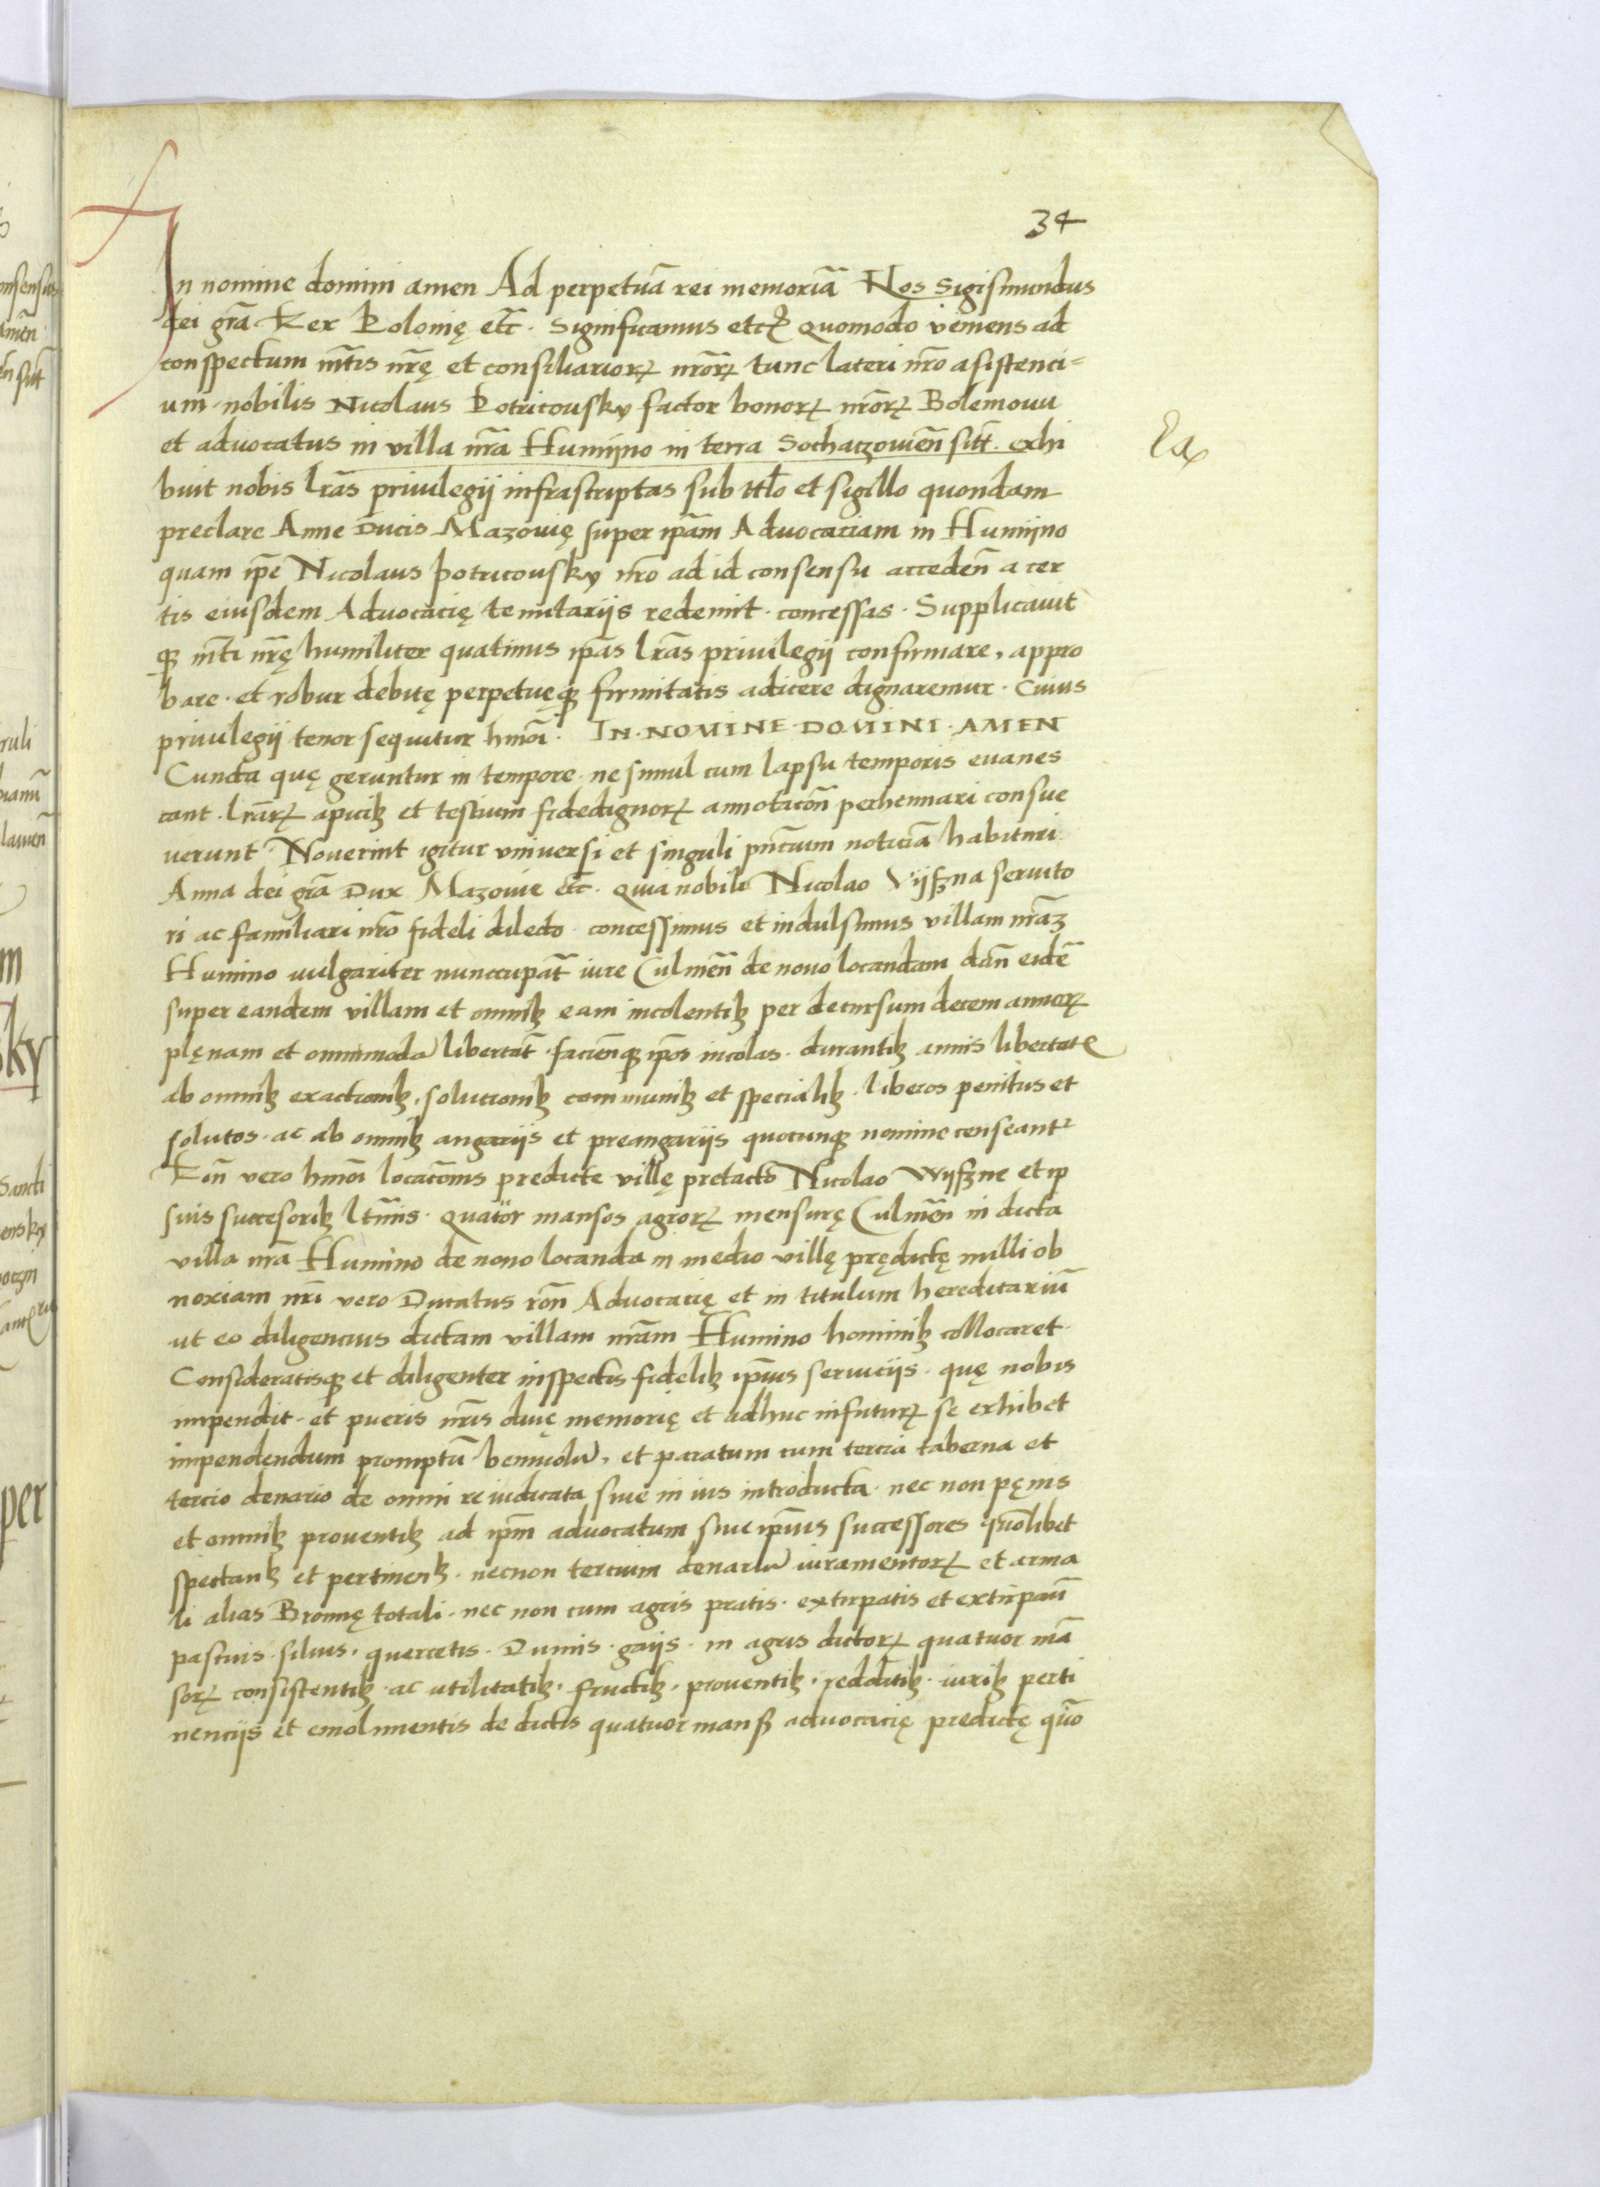 34
In nomine domini amen Ad perpetuā rei memoriā Nos Sigismundus
dei gr̄a Rex Polonię etc̄. Significamus etcꝫ quomodo veniens ad
conspectum mt̄is nr̄ę et consiliarioꝝ nr̄oꝝ tunc lateri nr̄o asistenci=
um nobilis Nicolaus Potricousky factor bonoꝝ nr̄oꝝ Bolemouu
et advocatus in villa nr̄a Humijno in terra Sochaczovien̄ sitt̄. exhi
buit nobis lr̄as privilegij infrascriptas sub ttl̄o et sigillo quondam
preclare Anne Ducis Mazovię super ip̄am Advocaciam in Humijno
quam ip̄e Nicolaus potricousky nr̄o ad id consensu acceden̄ a cer
tis eiusdem Advocacię tenutarijs redemit. concessas. Supplicavit
qꝫ mt̄i nr̄ę humiliter quatinus ip̄as lr̄as privilegij confirmare, appro
bare. et robur debitę perpetuęqꝫ firmitatis adicere dignaremur. Cuius
privilegij tenor sequitur hmōi. IN. NOMINE. DOMINI. AMEN
Cuncta quę geruntur in tempore. ne simul cum lapsu temporis evanes
cant. lr̄aꝝ apicibꝫ et testium fidedignoꝝ annotacōn perhennari consue
verunt. Noverint igitur universi et singuli pn̄cium noticiā habituri
Anna dei gr̄a Dux Mazovie etc̄. quia nobili Nicolao Vijszna servito
ri ac familiari nr̄o fideli dilecto. concessimus et indulsimus villam nr̄aꝫ
Humino vulgariter nunccupat̄ iure Culmen̄ de novo locandam dan̄ eidē
super eandem villam et omnibꝫ eam incolentibꝫ per decursum decem annoꝝ
plęnam et omnimodā libertat̄. facien̄qꝫ ip̄os incolas. durantibꝫ annis libertatꝭ
ab omnibꝫ exactionibꝫ, solucionibꝫ communibꝫ et specialibꝫ. liberos penitus et
solutos. ac ab omnibꝫ angarijs et preangarijs quocunqꝫ nomine censeant᷑
Rōn vero hmōi locacōnis predicte villę pretacto Nicolao Wijszne et ip
sius succesoribꝫ l̄tim̄is. quatuor mansos agroꝝ mensurę Culmen̄ in dicta
villa nr̄a Humino de novo locanda in medio villę prędictę nulli ob
noxiam nr̄i vero Ducatus rōn Advocacię et in titulum hereditariū
ut eo diligencius dictam villam nr̄am Humino hominibꝫ collocaret.
Consideratisqꝫ et diligenter inspectis fidelibꝫ ip̄ius servicijs. quę nobis
impendit. et pueris nr̄is divę memorię et adhuc in futuꝝ se exhibet
impendendum promptū benivolū, et paratum cum tercia taberna et
tercio denario de omni re iudicata sive in ius introducta. nec non pęnis
et omnibꝫ proventibꝫ ad ip̄m advocatum sive ip̄ius successores quōlibet
spectantibꝫ et pertinenbꝫ. necnon tercium denariū iuramentoꝝ et arma
li alias Bronnę totali. nec non cum agris pratis. extirpatis et extirpan̄
pascuis. silvis. quercetis. Dumis. gaijs. in agris dictoꝝ quatuor mā
soꝝ consistentibꝫ. ac utilitatibꝫ. fructibꝫ. proventibꝫ. redditibꝫ. iuribꝫ perti
nencijs et emolimentis de dictis quatuor mansꝭ advocacię predictę quō